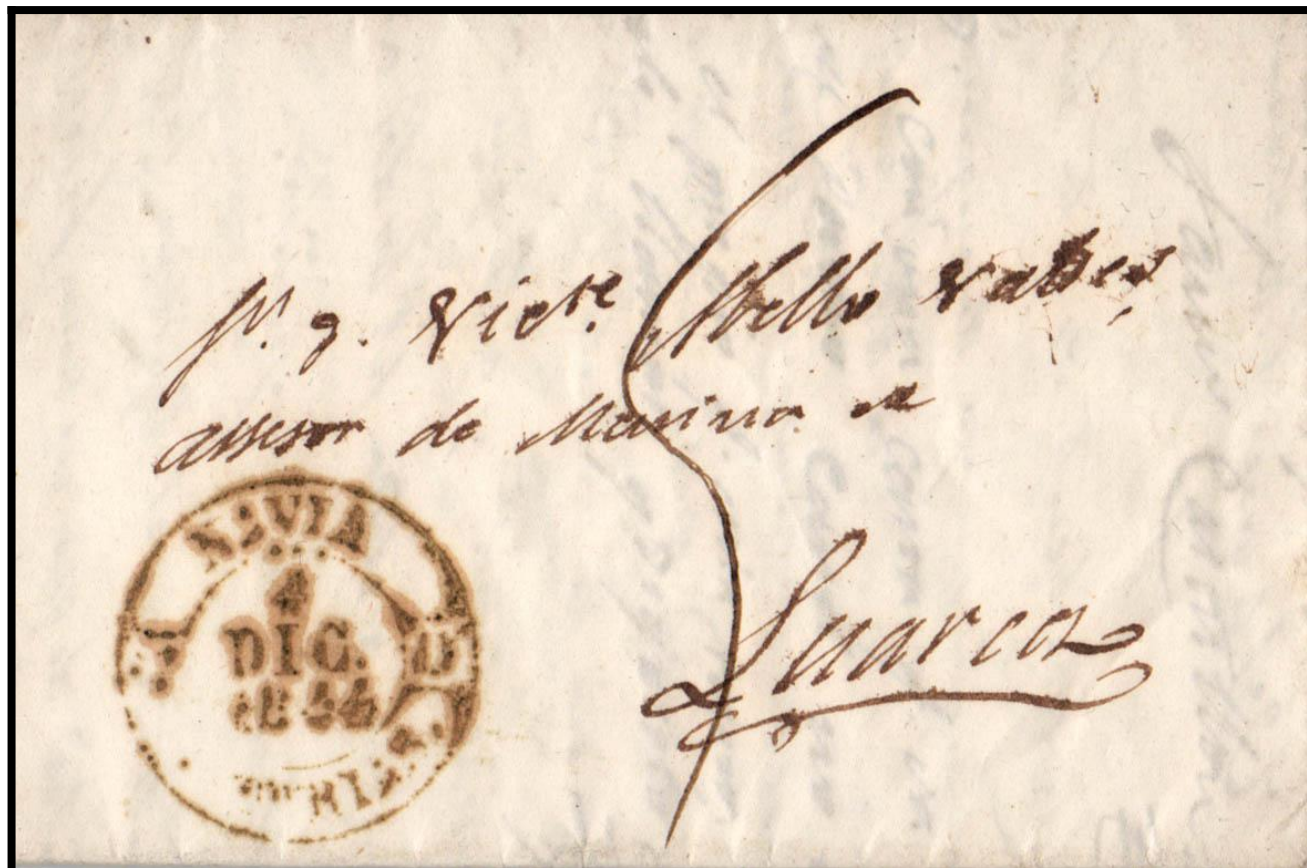 Sr. D. Victe. Abello Valdes
asesor de Marina de
Luarca
NAVIA
4
DIC.
1844